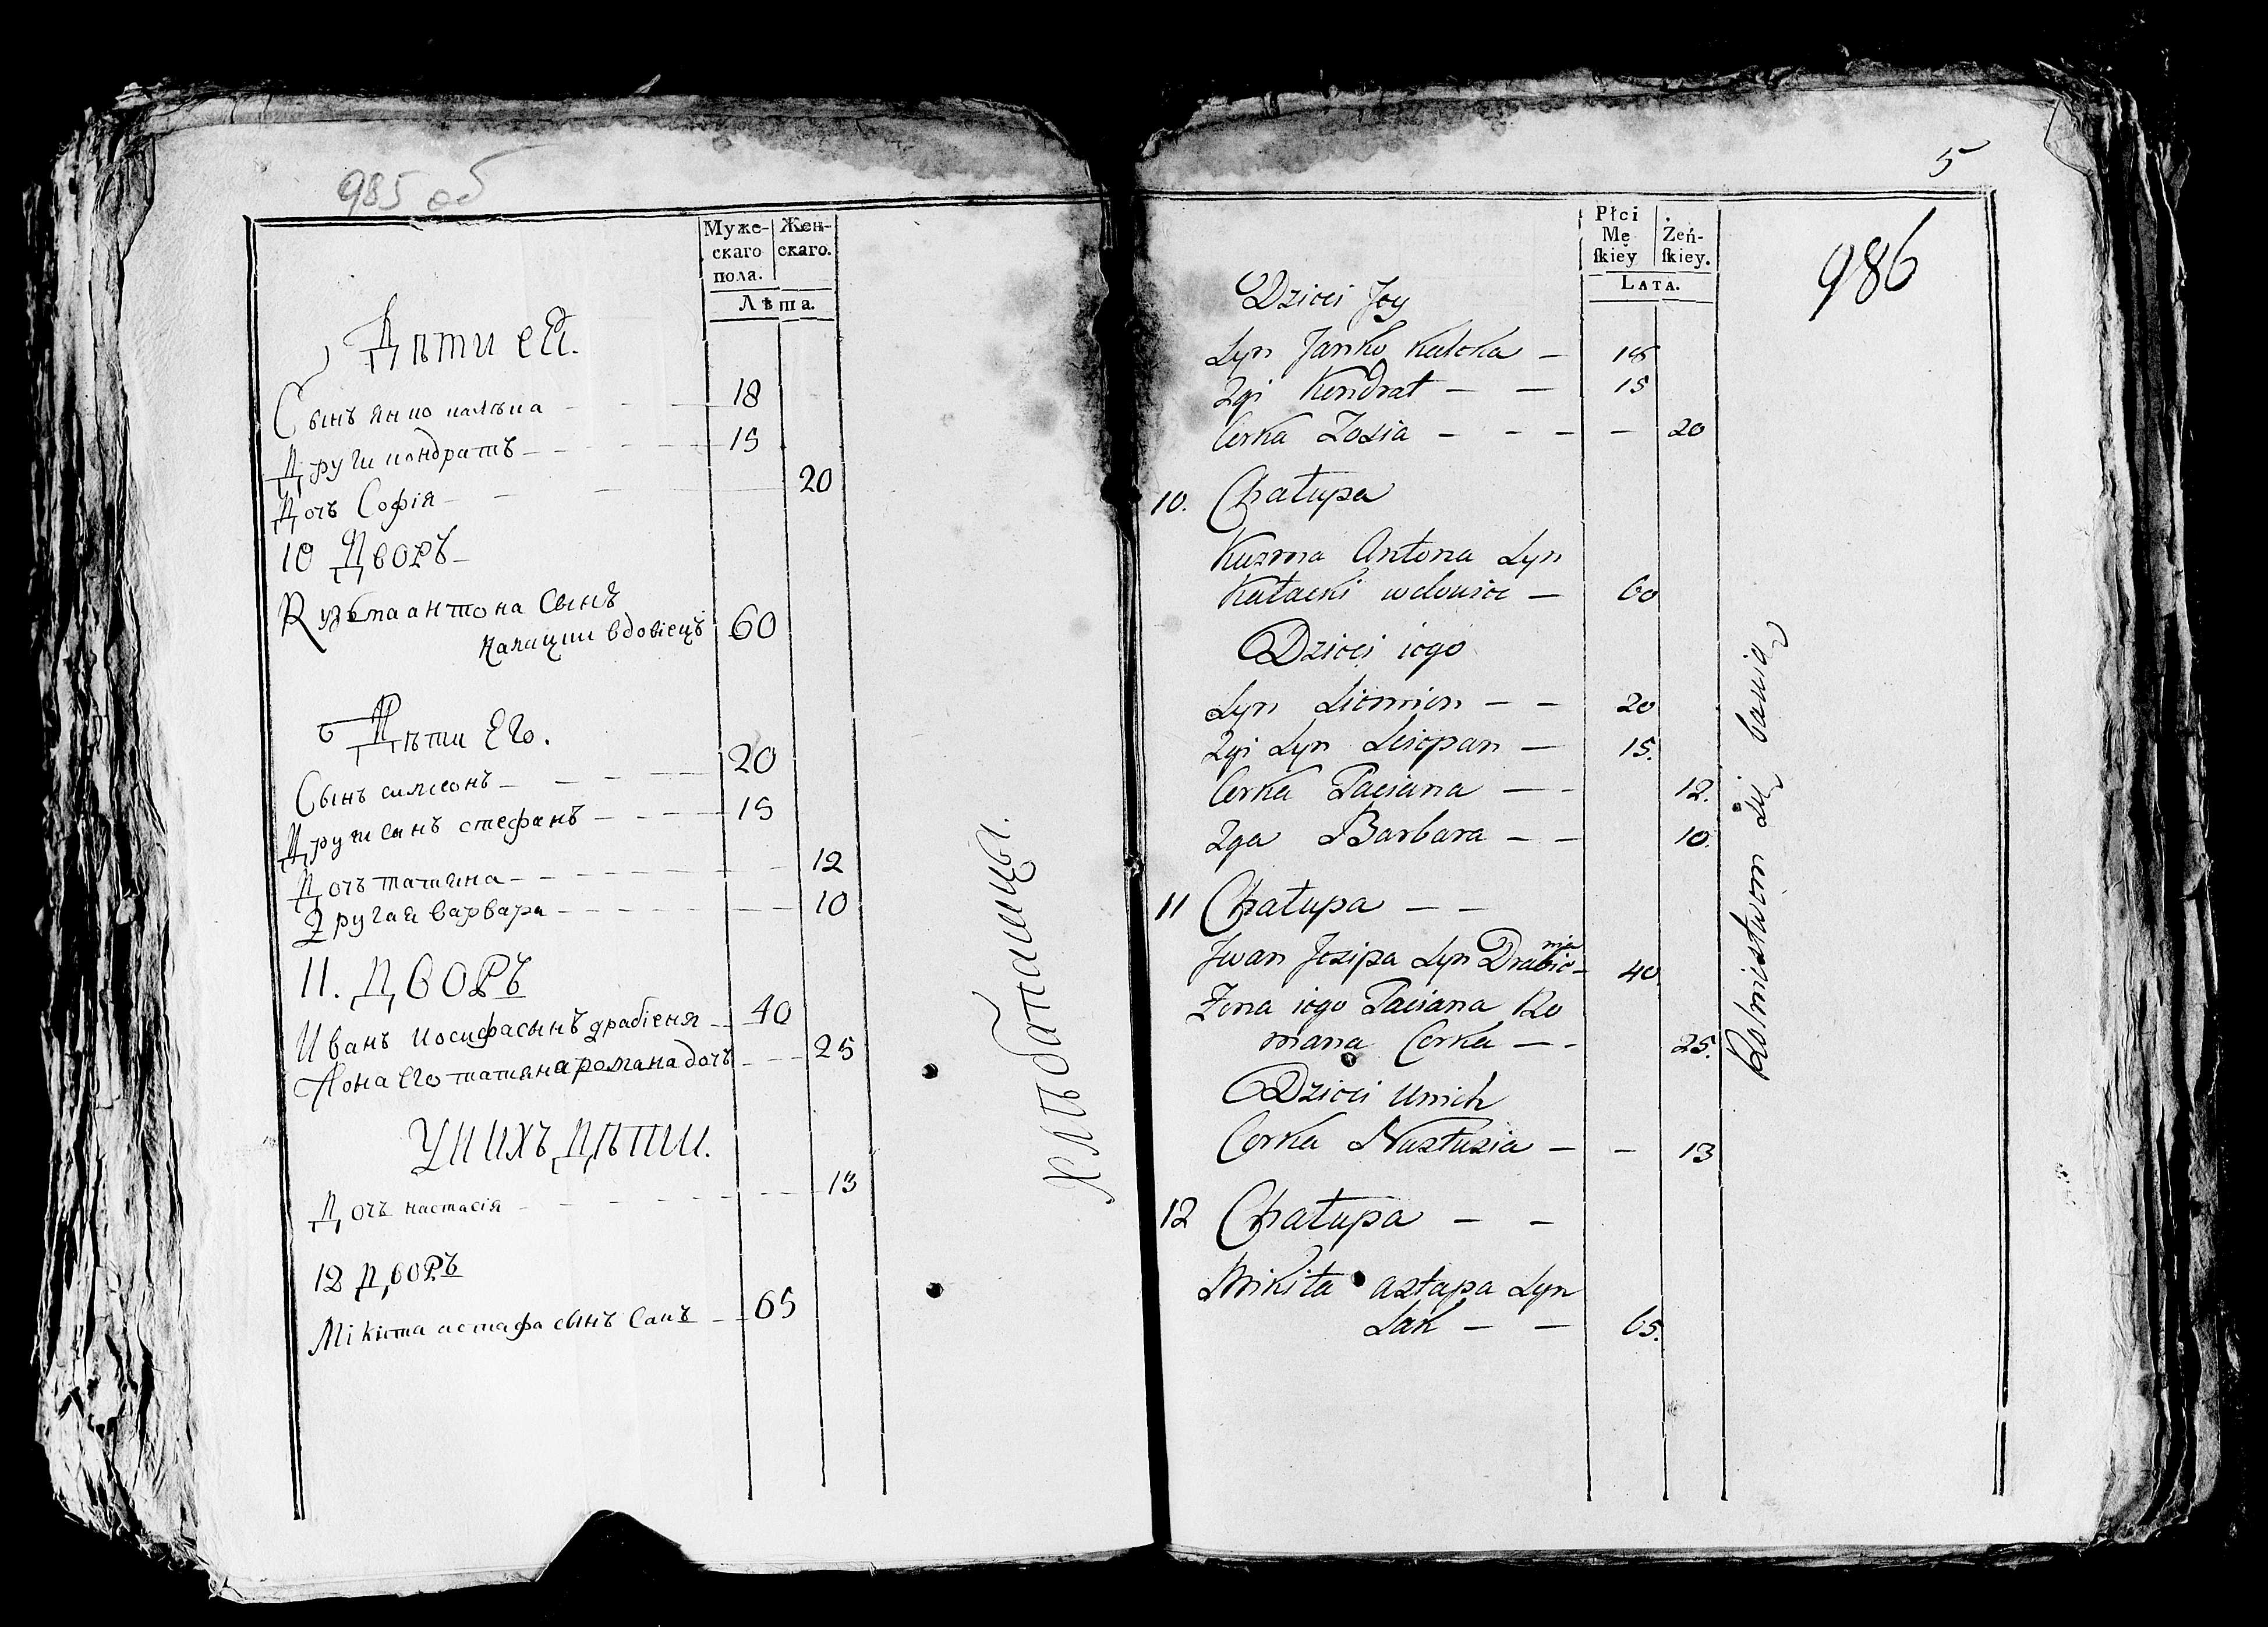 985 об
Муже-
скаго
пола.
Жен-
скаго.
Лѣта.
Дѣти еЯ.
Сынъ янко калъка - - - 18
Други кондратъ - - - 15
Дочъ Софія - - - 20
10 Дворъ
Кузьма антона Сынъ
калацки вдовіецъ 60
Дѣти Его.
Сынъ симеонъ - - - 20
Други сынъ стефанъ - - - 15
Дочъ татияна - - - 12
Другая варвара - - - 10
11. Дворъ
Иванъ иосифа сынъ драбіеня - - 40
Жона его татияна романа дочъ - - - 25
У нихъ дѣти.
Дочъ настасія - - - 13
12 дворъ
Мікіта астафа сынъ Сакъ - - 65
хлѣбапашцы.
5
986
Płci
Mę
ſkiey
Żeń-
ſkiey.
LATA.
Dzieci Jey
Syn Janko Kalcka — 18
2gi Kondrat — — 15
Corka Zosia — — — — 20
10. Chałupa
Kuzma Antona Syn
Kałacki wdowiec — 60
Dzieci iego
Syn Siemien — — 20
2gi Syn Sciepan — 15.
Corka Taciana — — 12.
2ga Barbara — — 10.
11 Chałupa — —
Jwan Jozipa Syn Drabie- 40
nia
Żona iego Taciana Ro
mana Corka — — 25.
Dzieci u nich
Corka Nastazia — — 13
12 Chałupa — —
Mikita Astapa Syn
Sak — — 65.
Rolnictwem się bawią